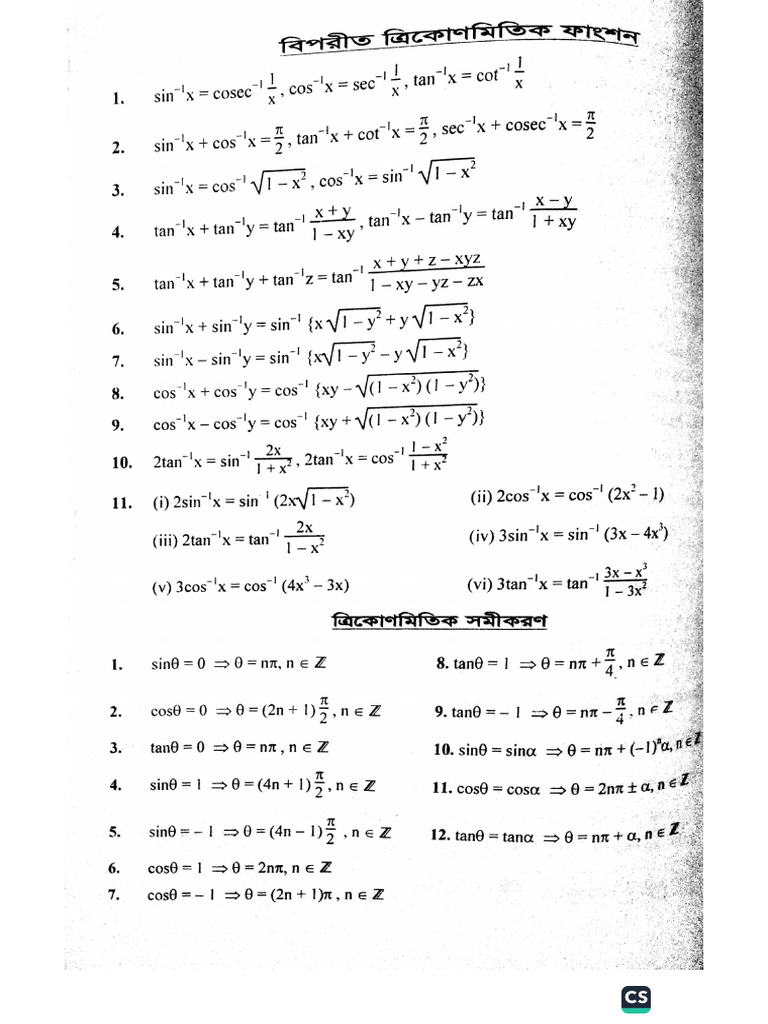 বিপরীত ত্রিকোণমিতিক ফাংশন
1. sin⁻¹x = cosec⁻¹ 1/x , cos⁻¹x = sec⁻¹ 1/x , tan⁻¹x = cot⁻¹ 1/x
2. sin⁻¹x + cos⁻¹x = π/2 , tan⁻¹x + cot⁻¹x = π/2 , sec⁻¹x + cosec⁻¹x = π/2
3. sin⁻¹x = cos⁻¹ √(1 – x²) , cos⁻¹x = sin⁻¹ √(1 – x²)
4. tan⁻¹x + tan⁻¹y = tan⁻¹ (x + y)/(1 – xy) , tan⁻¹x – tan⁻¹y = tan⁻¹ (x – y)/(1 + xy)
5. tan⁻¹x + tan⁻¹y + tan⁻¹z = tan⁻¹ (x + y + z – xyz)/(1 – xy – yz – zx)
6. sin⁻¹x + sin⁻¹y = sin⁻¹ {x√(1 – y²) + y√(1 – x²)}
7. sin⁻¹x – sin⁻¹y = sin⁻¹ {x√(1 – y²) – y√(1 – x²)}
8. cos⁻¹x + cos⁻¹y = cos⁻¹ {xy – √((1 – x²) (1 – y²))}
9. cos⁻¹x – cos⁻¹y = cos⁻¹ {xy + √((1 – x²) (1 – y²))}
10. 2tan⁻¹x = sin⁻¹ 2x/(1 + x²) , 2tan⁻¹x = cos⁻¹ (1 – x²)/(1 + x²)
11. (i) 2sin⁻¹x = sin⁻¹ (2x√(1 – x²)) (ii) 2cos⁻¹x = cos⁻¹ (2x² – 1)
(iii) 2tan⁻¹x = tan⁻¹ 2x/(1 – x²) (iv) 3sin⁻¹x = sin⁻¹ (3x – 4x³)
(v) 3cos⁻¹x = cos⁻¹ (4x³ – 3x) (vi) 3tan⁻¹x = tan⁻¹ (3x – x³)/(1 – 3x²)
ত্রিকোণমিতিক সমীকরণ
1. sinθ = 0 ⇒ θ = nπ, n ∈ ℤ
2. cosθ = 0 ⇒ θ = (2n + 1) π/2 , n ∈ ℤ
3. tanθ = 0 ⇒ θ = nπ , n ∈ ℤ
4. sinθ = 1 ⇒ θ = (4n + 1) π/2 , n ∈ ℤ
5. sinθ = – 1 ⇒ θ = (4n – 1) π/2 , n ∈ ℤ
6. cosθ = 1 ⇒ θ = 2nπ, n ∈ ℤ
7. cosθ = – 1 ⇒ θ = (2n + 1)π , n ∈ ℤ
8. tanθ = 1 ⇒ θ = nπ + π/4 , n ∈ ℤ
9. tanθ = – 1 ⇒ θ = nπ – π/4 , n ∈ ℤ
10. sinθ = sinα ⇒ θ = nπ + (–1)ⁿα, n ∈ ℤ
11. cosθ = cosα ⇒ θ = 2nπ ± α, n ∈ ℤ
12. tanθ = tanα ⇒ θ = nπ + α, n ∈ ℤ
CS